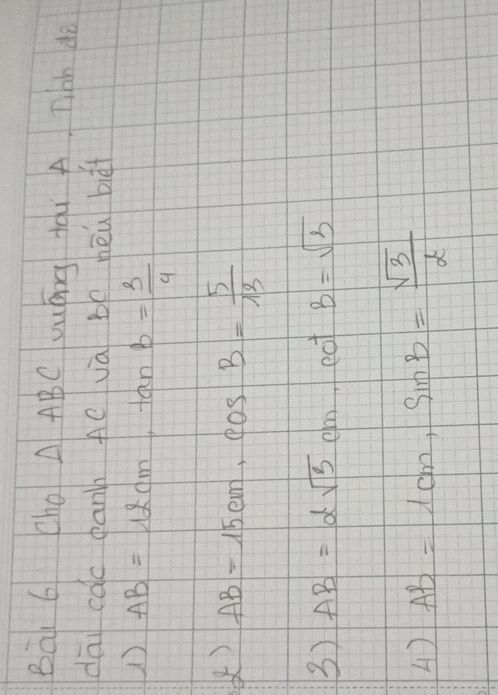 Bài 6 Cho Δ ABC vuông tại A, Tính độ
dài các cạnh AC và BC nếu biết
1) AB = 12cm, tan B = 3/4
2) AB = 15cm, cos B = 5/13
3) AB = 2√3 cm, cot B = √3
4) AB = 1cm, Sin B = √3/2